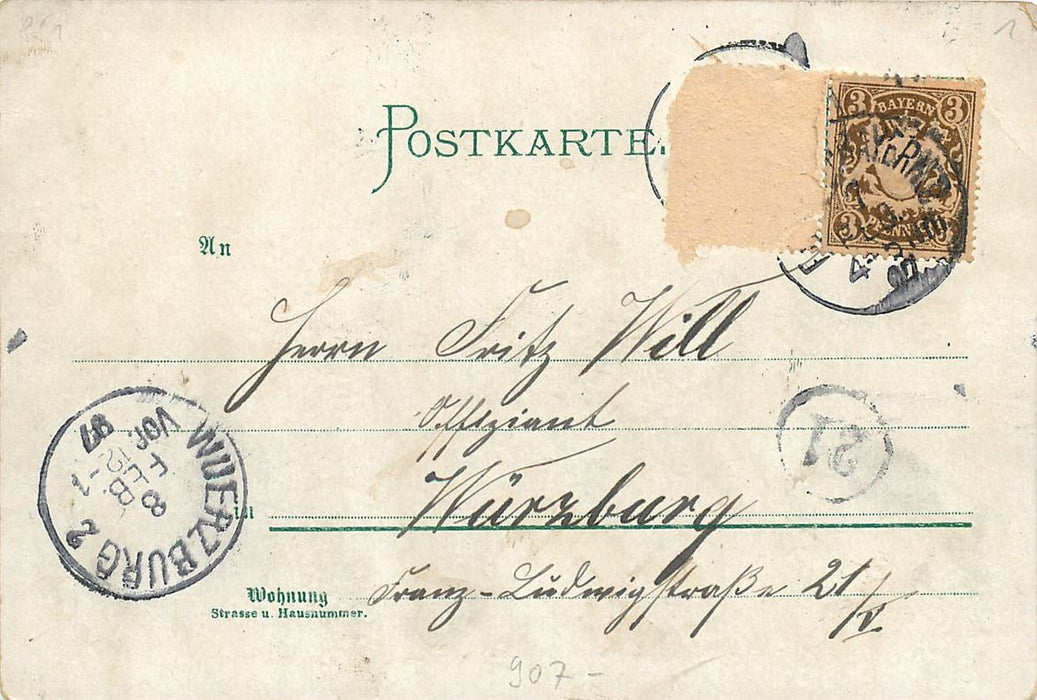 POSTKARTE.
3 BAYERN 3
3 PFENNIG
An
Herrn Fritz Will
Offiziant
in Würzburg
Wohnung Franz-Ludwigstraße 21/
Strasse u. Hausnummer.
WUERZBURG 2
8 FEB. 97
VOR. 12-1
21
907-